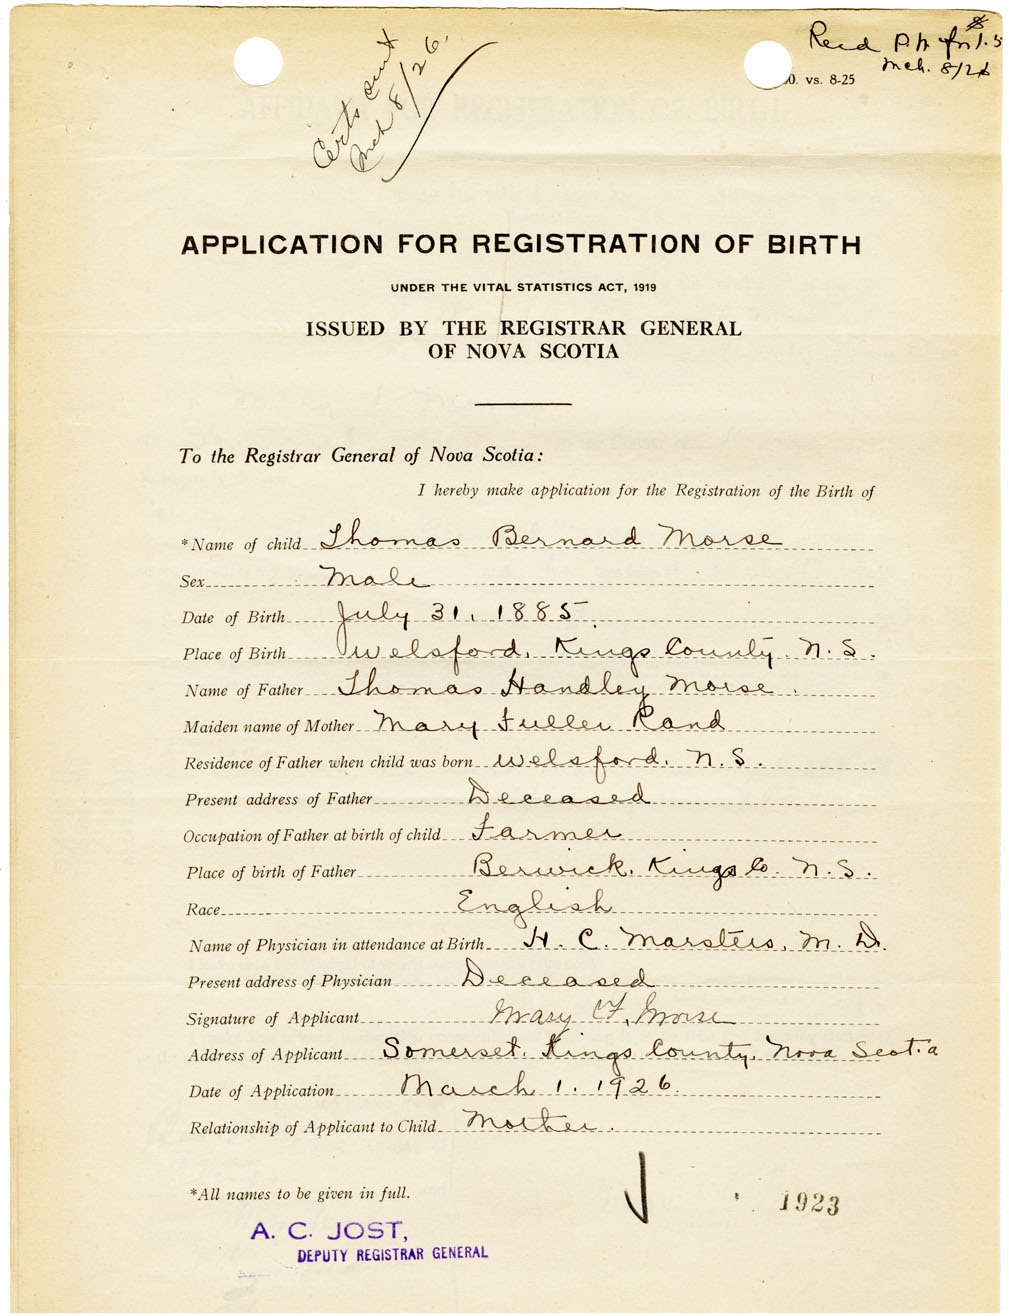 Certs sent
Mch 8/26.
Recd P.N. for $1.5
Mch. 8/26
00. vs. 8-25
APPLICATION FOR REGISTRATION OF BIRTH
UNDER THE VITAL STATISTICS ACT, 1919
ISSUED BY THE REGISTRAR GENERAL
OF NOVA SCOTIA
To the Registrar General of Nova Scotia:
I hereby make application for the Registration of the Birth of
*Name of child Thomas Bernard Morse
Sex Male
Date of Birth July 31, 1885.
Place of Birth Welsford, Kings County. N. S.
Name of Father Thomas Handley Morse.
Maiden name of Mother Mary Fuller Rand
Residence of Father when child was born Welsford, N. S.
Present address of Father Deceased
Occupation of Father at birth of child Farmer
Place of birth of Father Berwick, Kings Co. N. S.
Race English
Name of Physician in attendance at Birth H. C. Marsters, M. D.
Present address of Physician Deceased
Signature of Applicant Mary F. Morse
Address of Applicant Somerset, Kings County, Nova Scotia
Date of Application March 1. 1926.
Relationship of Applicant to Child Mother.
*All names to be given in full.
1923
A. C. JOST,
DEPUTY REGISTRAR GENERAL